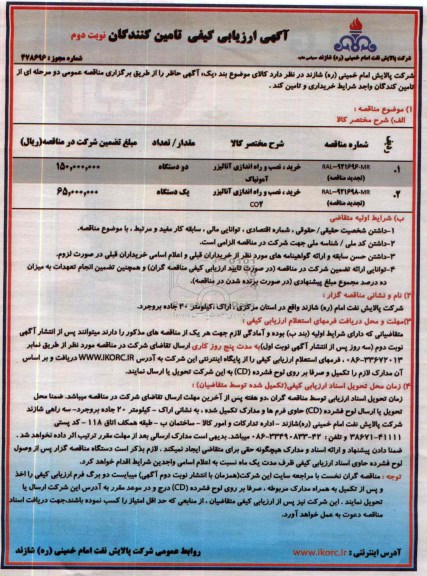 آگهی ارزیابی کیفی تامین کنندگان نوبت دوم
شرکت پالایش نفت امام خمینی (ره) شازند
شماره مجوز: ۴۷۸۶۹۶
شرکت پالایش امام خمینی (ره) شازند در نظر دارد کالای موضوع بند «یک» آگهی حاضر را از طریق برگزاری مناقصه عمومی دو مرحله ای از
تامین کنندگان واجد شرایط خریداری و تامین کند.
۱) موضوع مناقصه:
الف) شرح مختصر کالا
ردیف شماره مناقصه شرح مختصر کالا مقدار / تعداد مبلغ تضمین شرکت در مناقصه(ریال)
۰۱ RAL-۹۲۱۶۹۶-MR (تجدید مناقصه) خرید ، نصب و راه اندازی آنالیزر آمونیاک دو دستگاه ۱۵۰,۰۰۰,۰۰۰
۰۲ RAL-۹۲۱۶۹۸-MR (تجدید مناقصه) خرید ، نصب و راه اندازی آنالیزر CO۲ یک دستگاه ۶۵,۰۰۰,۰۰۰
ب) شرایط اولیه متقاضی
۱-داشتن شخصیت حقیقی/ حقوقی ، شماره اقتصادی ، توانایی مالی ، سابقه کار مفید و مرتبط ، با موضوع مناقصه.
۲-داشتن کد ملی / شناسه ملی جهت شرکت در مناقصه الزامی است.
۳-داشتن حسن سابقه و ارائه گواهینامه های مورد نظر از خریداران قبلی و اعلام اسامی خریداران قبلی در صورت لزوم.
۴-توانایی ارائه تضمین شرکت در مناقصه (در صورت تایید ارزیابی کیفی مناقصه گران) و همچنین تضمین انجام تعهدات به میزان
ده درصد مجموع مبلغ پیشنهادی (در صورت برنده شدن در مناقصه).
۲) نام و نشانی مناقصه گزار:
شرکت پالایش نفت امام خمینی (ره) شازند واقع در استان مرکزی ، اراک ،کیلومتر ۲۰ جاده بروجرد.
۳)مهلت و محل دریافت فرمهای استعلام ارزیابی کیفی:
متقاضیانی که دارای شرایط اولیه (بند ب) بوده و آمادگی لازم جهت هر یک از مناقصه های مذکور را دارند میتوانند پس از انتشار آگهی
نوبت دوم (سه روز پس از انتشار آگهی نوبت اول)به مدت پنج روز کاری ارسال تقاضای شرکت در مناقصه مورد نظر از طریق نمابر
۰۸۶-۳۳۶۷۲۰۱۳ ، فرمهای استعلام ارزیابی کیفی را از پایگاه اینترنتی این شرکت به آدرس WWW.IKORC.IR دریافت و بر اساس
آن مدارک لازم را تکمیل و صرفا بر روی لوح فشرده (CD) به این شرکت تحویل یا ارسال نمایند.
۴) زمان محل تحویل اسناد ارزیابی کیفی(تکمیل شده توسط متقاضیان):
زمان تحویل اسناد ارزیابی توسط مناقصه گران ،دو هفته پس از آخرین مهلت ارسال تقاضای شرکت در مناقصه میباشد. ضمنا محل
تحویل یا ارسال لوح فشرده (CD) حاوی فرم ها و مدارک تکمیل شده ، به نشانی اراک - کیلومتر ۲۰ جاده بروجرد- سه راهی شازند
شرکت پالایش نفت امام خمینی (ره)شازند -اداره تدارکات و امور کالا - ساختمان ب - طبقه همکف اتاق ۱۱۸ - کد پستی
۳۸۶۷۱-۴۱۱۱۱ و تلفن: ۴۲-۰۸۶-۳۳۴۹۰۸۳۳ میباشد. بدیهی است مدارک ارسالی بعد از مهلت مقرر ترتیب اثر داده نخواهد شد.
ضمنا دادن پیشنهاد و ارائه اسناد و مدارک هیچگونه حقی برای متقاضی ایجاد نمیکند . لازم بذکر است دستگاه مناقصه گزار پس از وصول
لوح فشرده حاوی اسناد ارزیابی کیفی ظرف مدت یک ماه نسبت به اعلام اسامی واجدین شرایط اقدام خواهد کرد.
توجه : مناقصه گران نخست با مراجعه سایت این شرکت(همزمان با انتشار نوبت دوم آگهی) میبایست دو برگ فرم ارزیابی کیفی را اخذ
و پس از تکمیل به همراه مدارک مربوطه ، صرفا بر روی لوح فشرده (CD) درج و در موعد مقرر به آدرس این شرکت ارسال یا
تحویل نمایند . این شرکت نیز پس از ارزیابی کیفی متقاضیان ، از منابعی که حد اقل امتیاز را کسب نموده باشند،جهت دریافت اسناد
مناقصه دعوت به عمل خواهد آورد.
آدرس اینترنتی : www.ikorc.ir
روابط عمومی شرکت پالایش نفت امام خمینی (ره) شازند